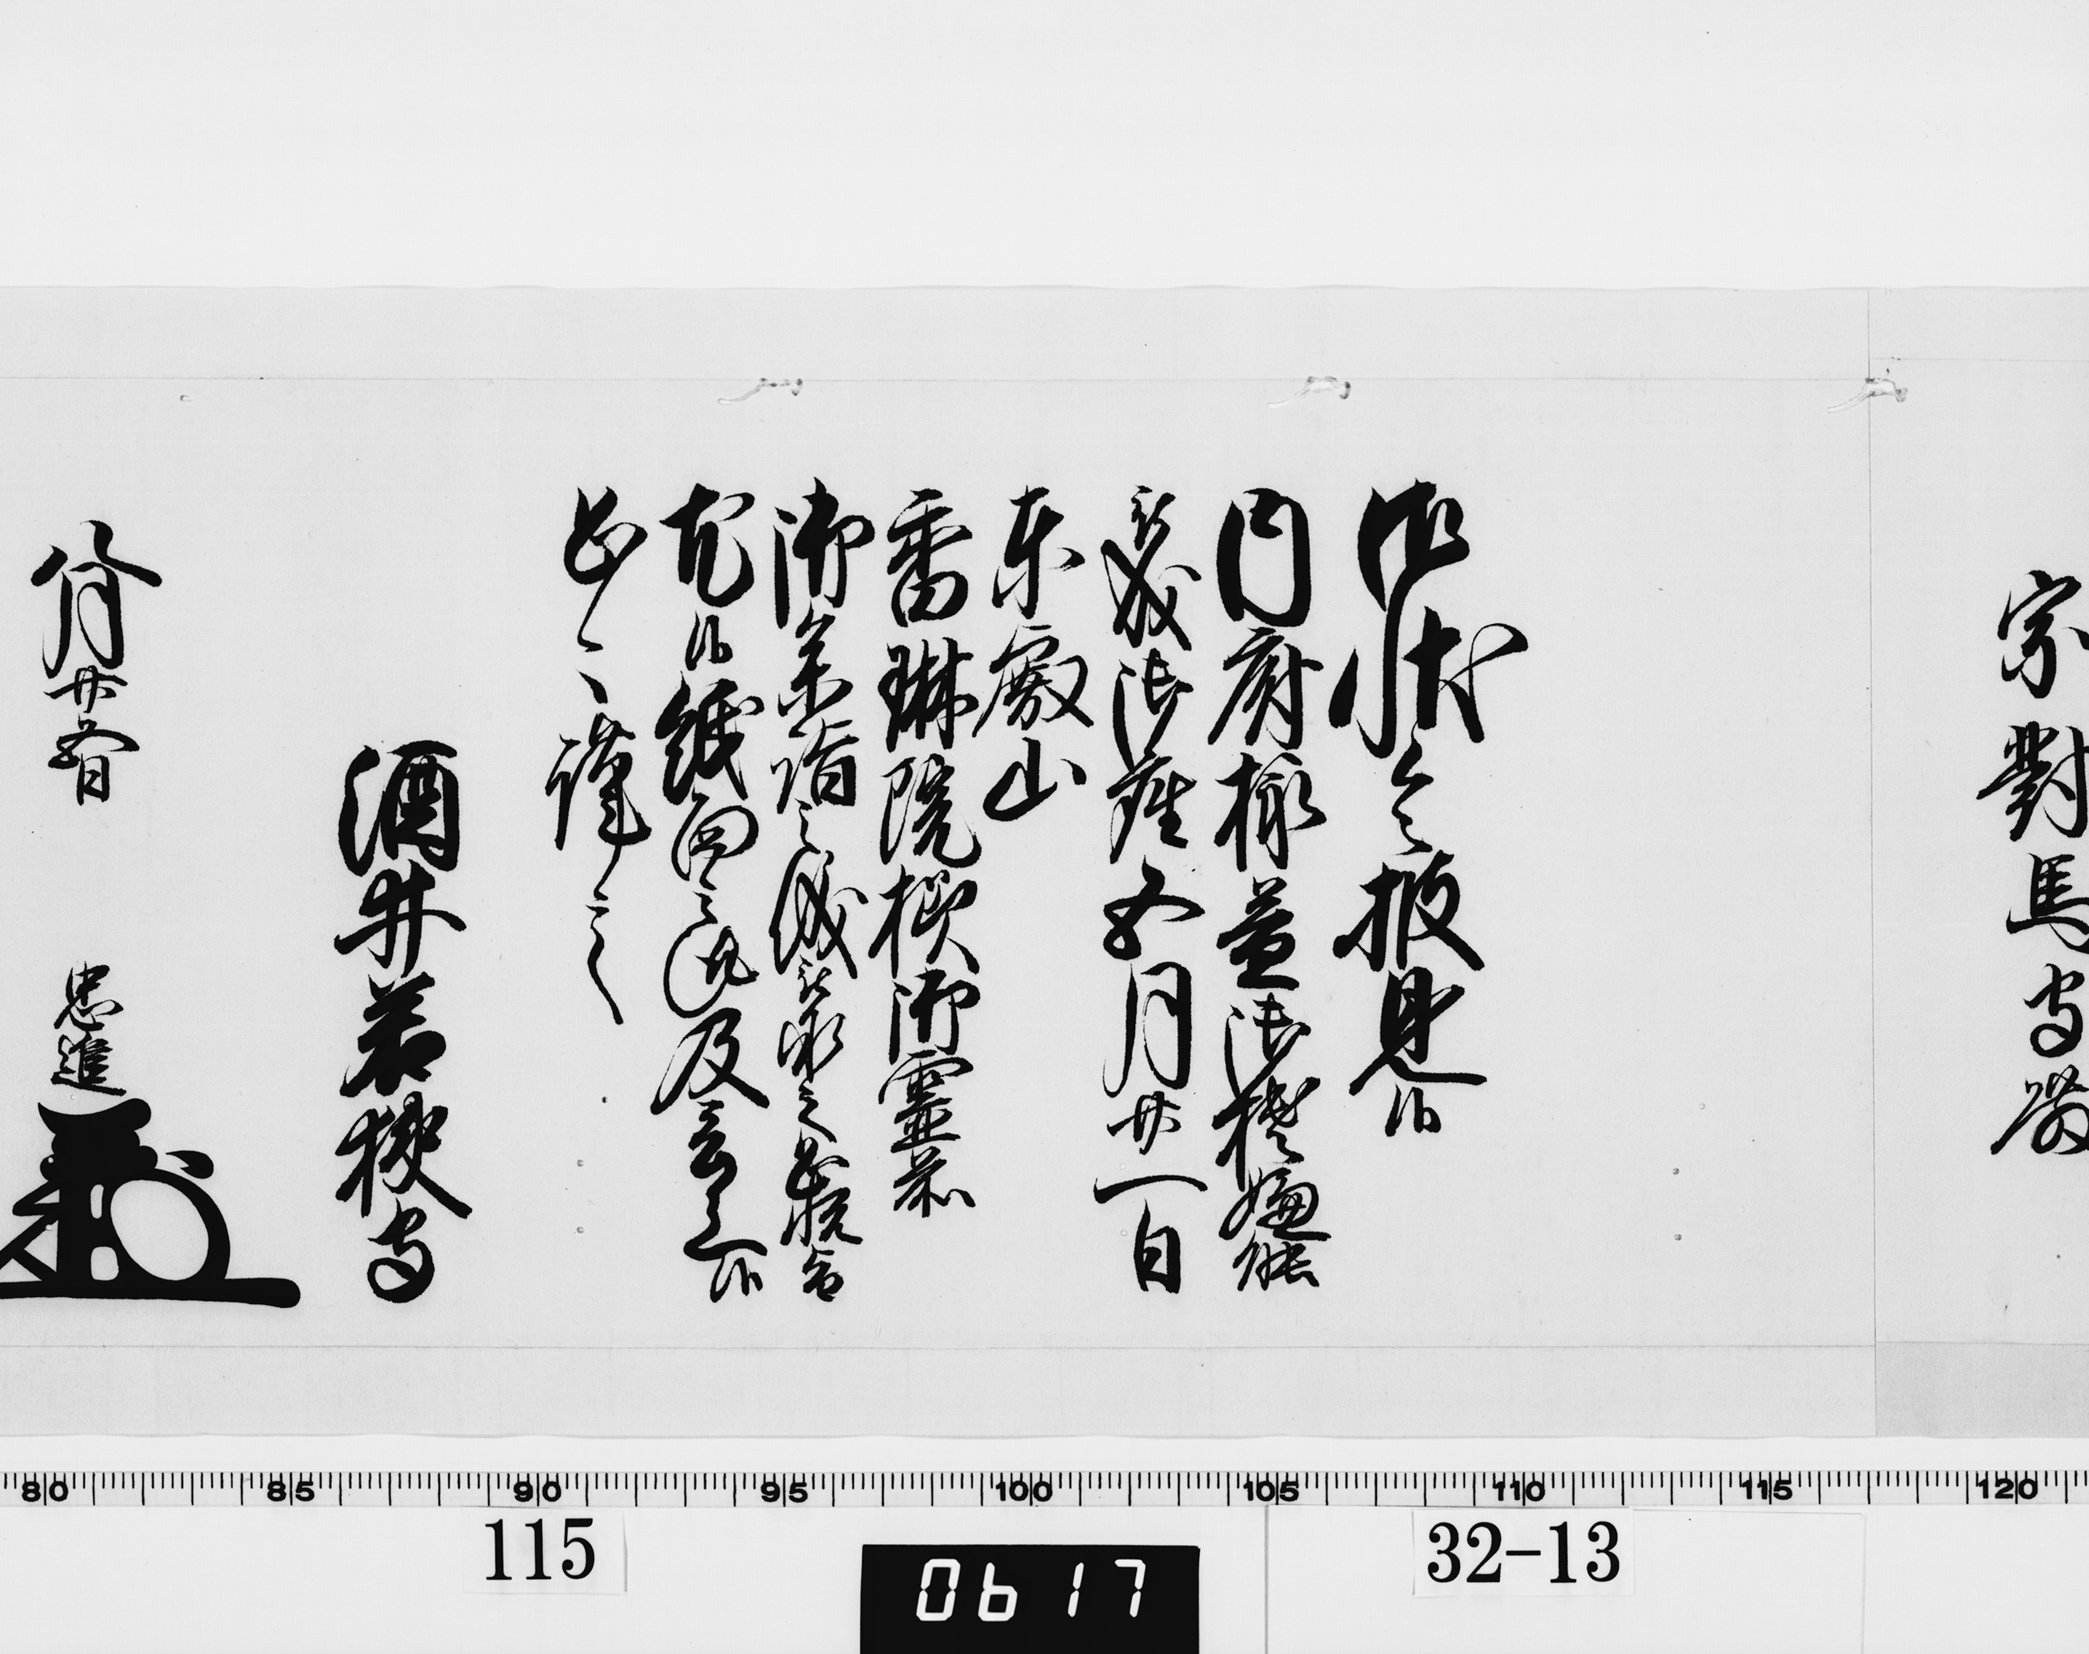 宗對馬守殿
御状令披見候
内府様益御機嫌能
被成御座五月廿一日
東叡山
香琳院様御霊前
御参詣之儀被承之恐悦旨
尤候紙面之趣及言上候
恐々謹言
酒井若狭守
八月廿五日 忠進
80 85 90 95 100 105 110 115 120
115 0617 32-13